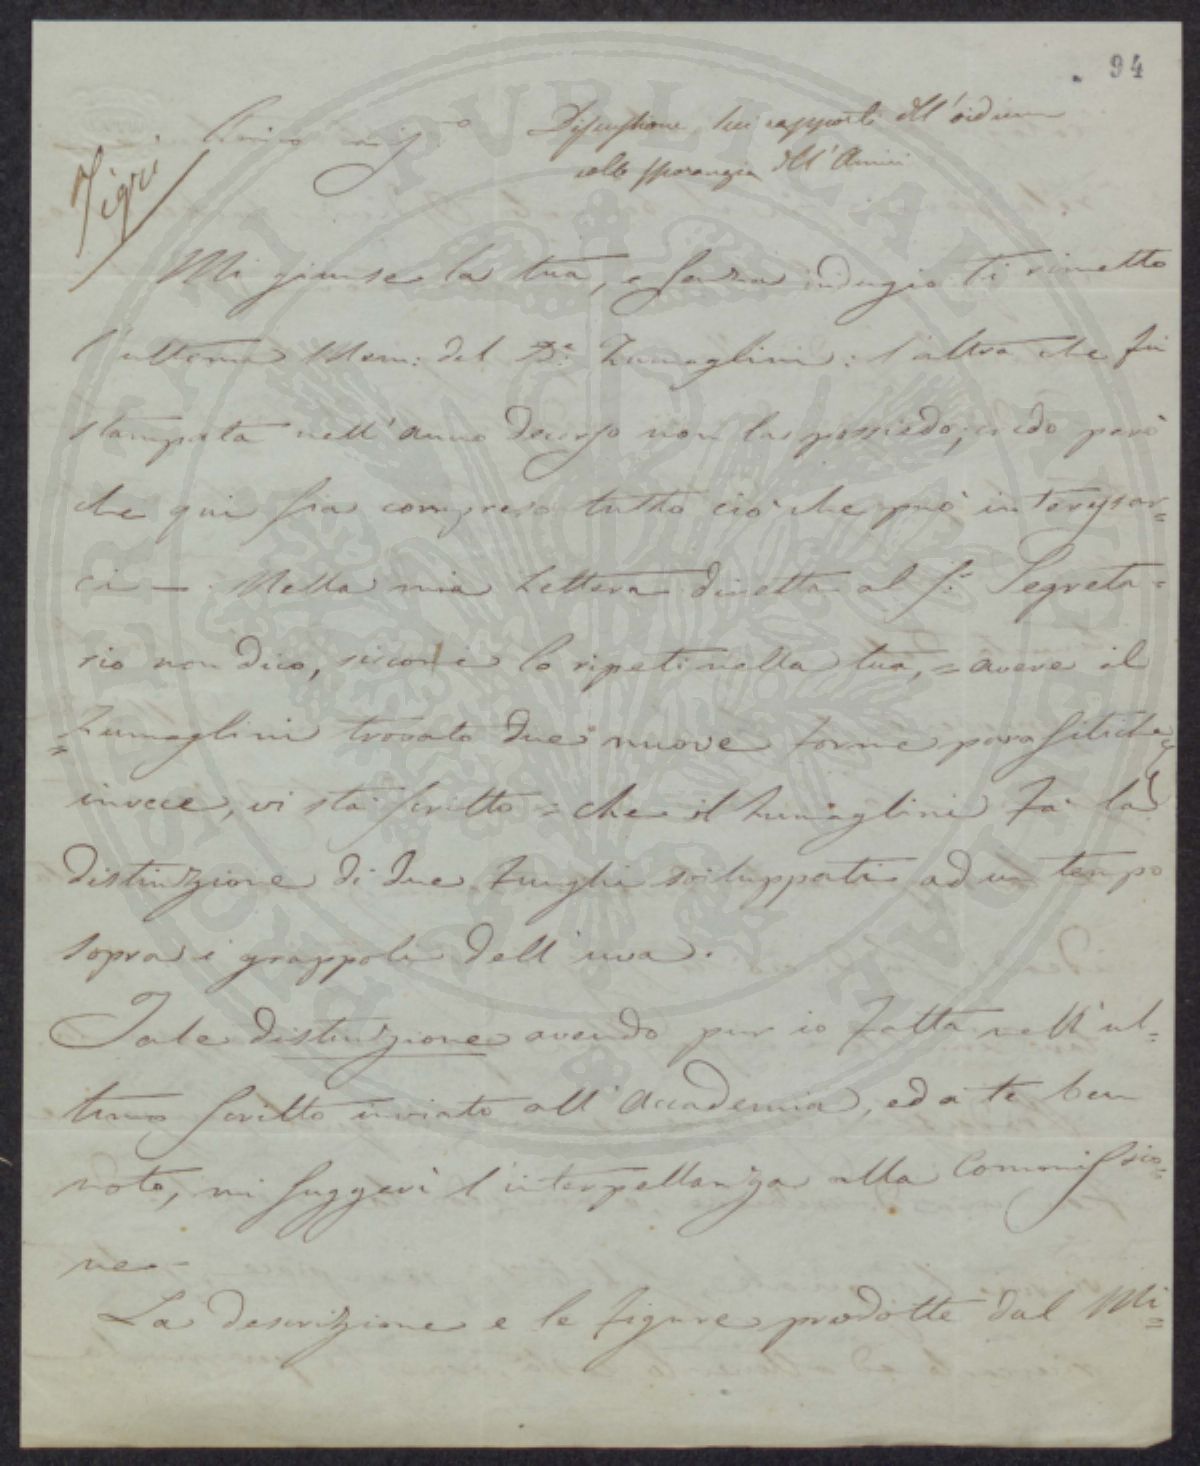 94
Discussione sui rapporti dell'oidium
colle sporangia dell'Amici
Tigri
Amico mio
Mi giunse la tua, e senza indugio ti rimetto
l'ultima Mem: del Dr. Zumaglini: l'altra che fu
stampata nell'anno decorso non la possiedo; credo però
che qui sia compreso tutto ciò che può interessar=
ci — Nella mia Lettera diretta al S.r Segreta=
rio non dico, siccome lo ripeti nella tua, = avere il
Zumaglini trovato due nuove forme parasitiche
= invece, vi sta scritto = che il Zumaglini fa la
distinzione di due funghi sviluppati ad un tempo
sopra i grappoli dell'uva.
Tale distinzione avendo pur io fatta nell'ul=
timo scritto inviato all'Accademia, ed a te ben
noto, mi suggerì l'interpellanza alla Commissio=
ne —
La descrizione e le figure prodotte dal Mi=